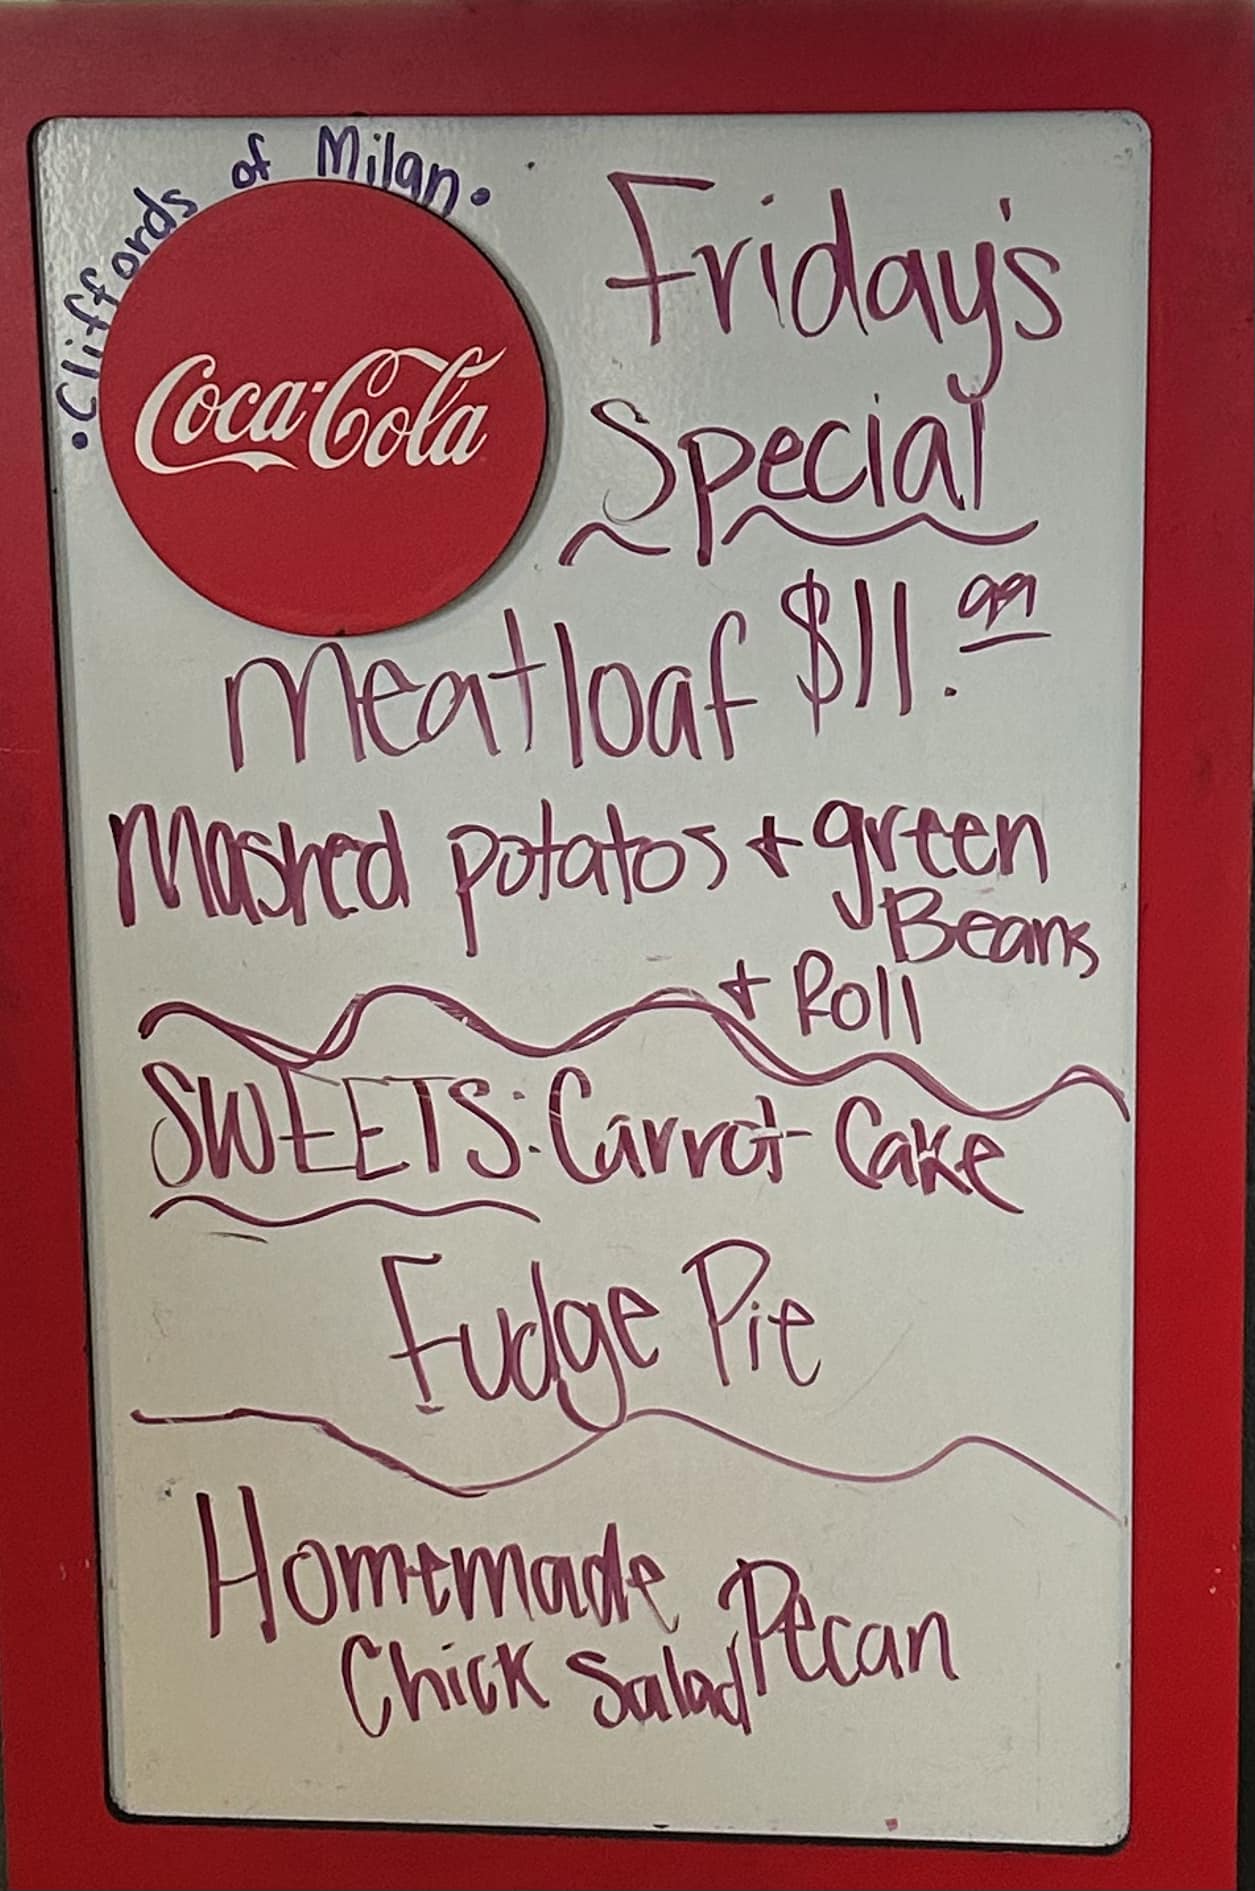 • Cliffords of Milan •
Coca-Cola
Friday's
Special
Meatloaf $11.99
Mashed potatos + green
Beans
+ Roll
SWEETS: Carrot Cake
Fudge Pie
Homemade Pecan
Chick Salad